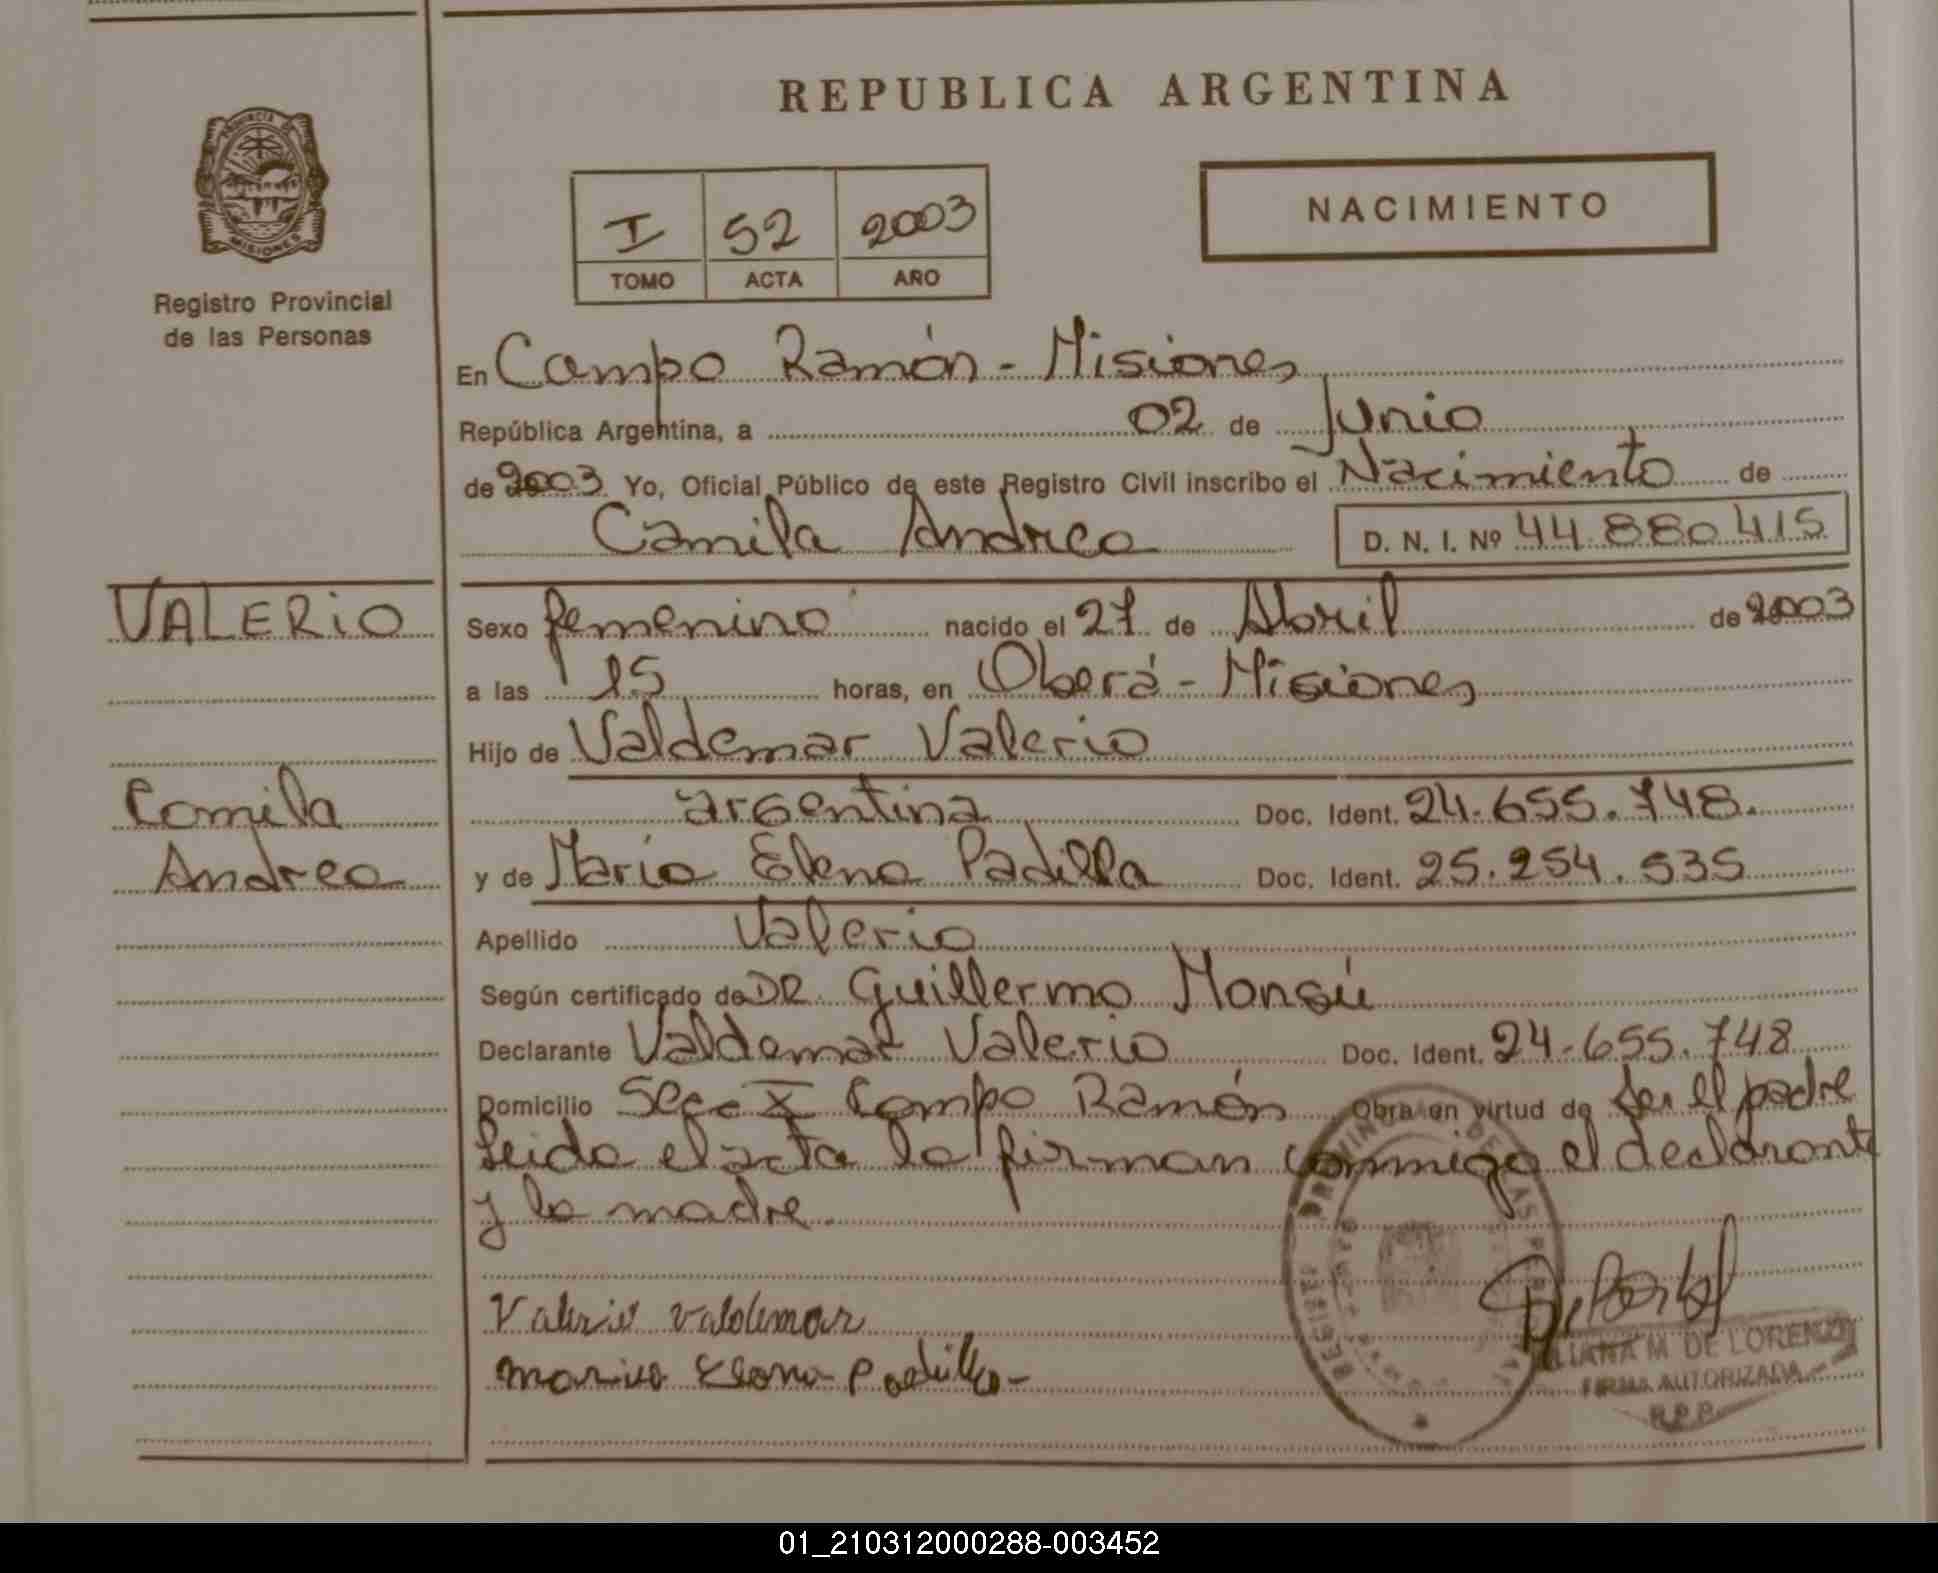 REPUBLICA ARGENTINA
PROVINCIA DE
MISIONES
Registro Provincial
de las Personas
I 52 2003
TOMO ACTA AÑO
NACIMIENTO
En Campo Ramón - Misiones
República Argentina, a 02 de Junio
de 2003 Yo, Oficial Público de este Registro Civil inscribo el Nacimiento de
Camila Andrea
D. N. I. Nº 44.880.415
VALERIO
Camila
Andrea
Sexo femenino nacido el 27 de Abril de 2003
a las 15 horas, en Oberá - Misiones
Hijo de Valdemar Valerio
argentina Doc. Ident. 24.655.748.
y de María Elena Padilla Doc. Ident. 25.254.535
Apellido Valerio
Según certificado de DR. Guillermo Monsú
Declarante Valdemar Valerio Doc. Ident. 24.655.748
Domicilio Secc. X Campo Ramón Obra en virtud de ser el padre
Leida el acta la firman conmigo el declarante
y la madre.
Valerio Valdemar
Maria Elena Padilla -
REGISTRO PROVINCIAL DE LAS PERSONAS
M DE LORENZO
FIRMA AUTORIZADA
R.P.P.
01_210312000288-003452